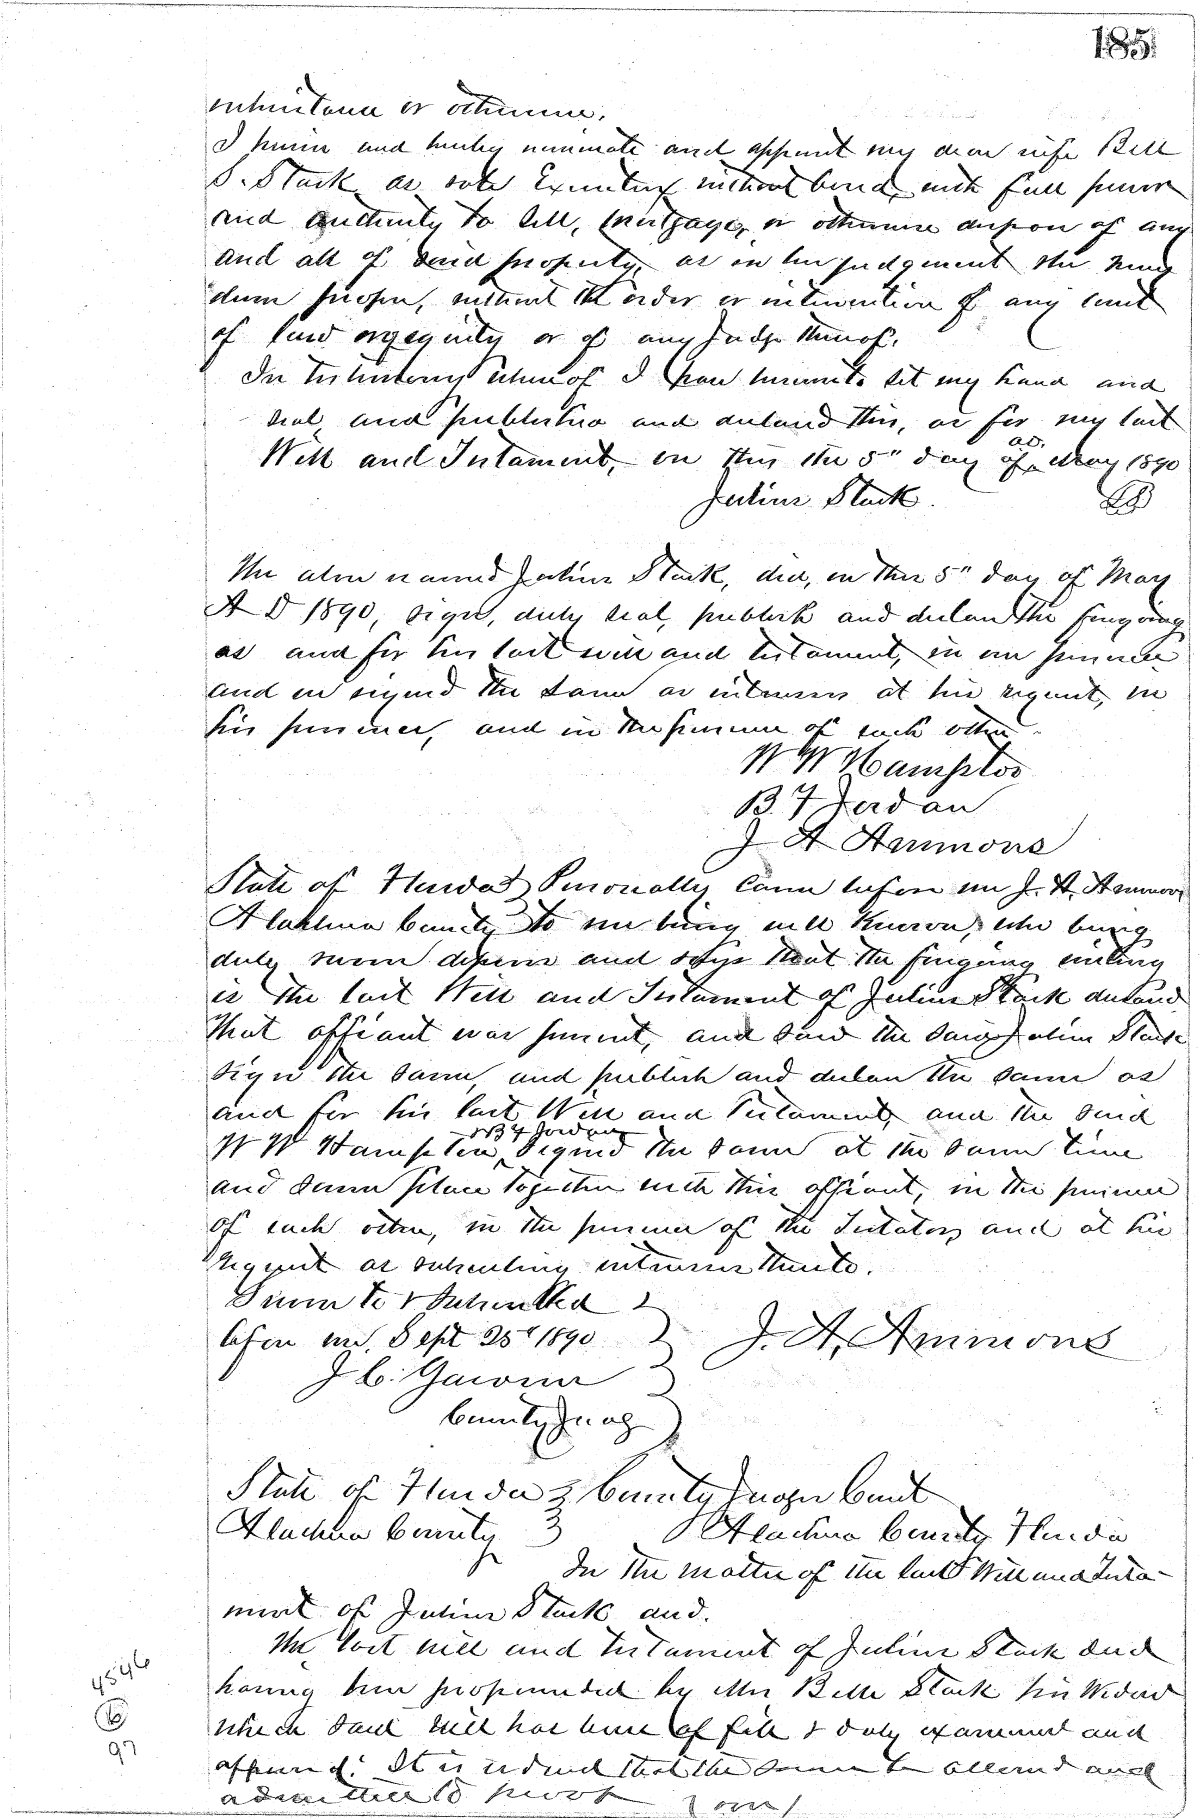 185
inheritance or otherwise.
I herein and hereby nominate and appoint my dear wife Bell
S. Stark as sole Executrix without bond, with full power
and authority to sell, mortgage, or otherwise dispose of any
and all of said property, as in her judgment she may
deem proper, without the order or intervention of any court
of law or equity or of any Judge thereof.
In testimony whereof I have hereunto set my hand and
seal and published and declared this, as for my last
Will and Testament, on this the 5" day of AD. May 1890
Julius Stark. LS
The above named Julius Stark, did, on this 5" day of May
A D 1890, sign, duly seal, publish and declare the foregoing
as and for his last will and testament, in our presence
and we signed the same as witnesses at his request, in
his presence, and in the presence of each other.
W W Hampton
B. F Jordan
J A Ammons
State of Florida } Personally came before me J. A. Ammons
Alachua County } to me being well known, who being
duly sworn deposes and says that the foregoing writing
is the last Will and Testament of Julius Stark deceased
That affiant was present, and saw the said Julius Stark
sign the same, and publish and declare the same as
and for his last Will and Testament, and the said
W W Hampton, & B F Jordan signed the same at the same time
and same place together with this affiant, in the presence
of each other, in the presence of the Testator, and at his
request as subscribing witnesses thereto.
Sworn to & Subscribed }
before me, Sept 25" 1890 } J. A. Ammons
J C. Gardner }
County Judge }
State of Florida } County Judges Court
Alachua County } Alachua County Florida
In the matter of the last Will and Testa-
ment of Julius Stark decd.
The last will and testament of Julius Stark decd
having been propounded by Mrs Belle Stark his Widow
which said will has been of file & duly examined and
approved. It is ordered that the same be allowed and
admitted to
4546
B
97